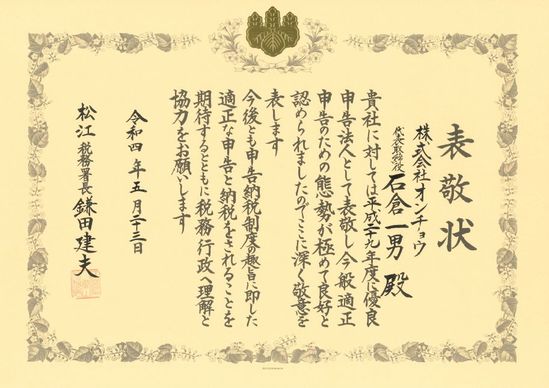 表敬状
株式会社オンチョウ
代表取締役 石倉一男 殿
貴社に対しては平成二十九年度に優良
申告法人として表敬し今般適正
申告のための態勢が極めて良好と
認められましたのでここに深く敬意を
表します
今後とも申告納税制度の趣旨に即した
適正な申告と納税をされることを
期待するとともに税務行政へ理解と
協力をお願いします
令和四年五月二十三日
松江税務署長 鎌田建夫